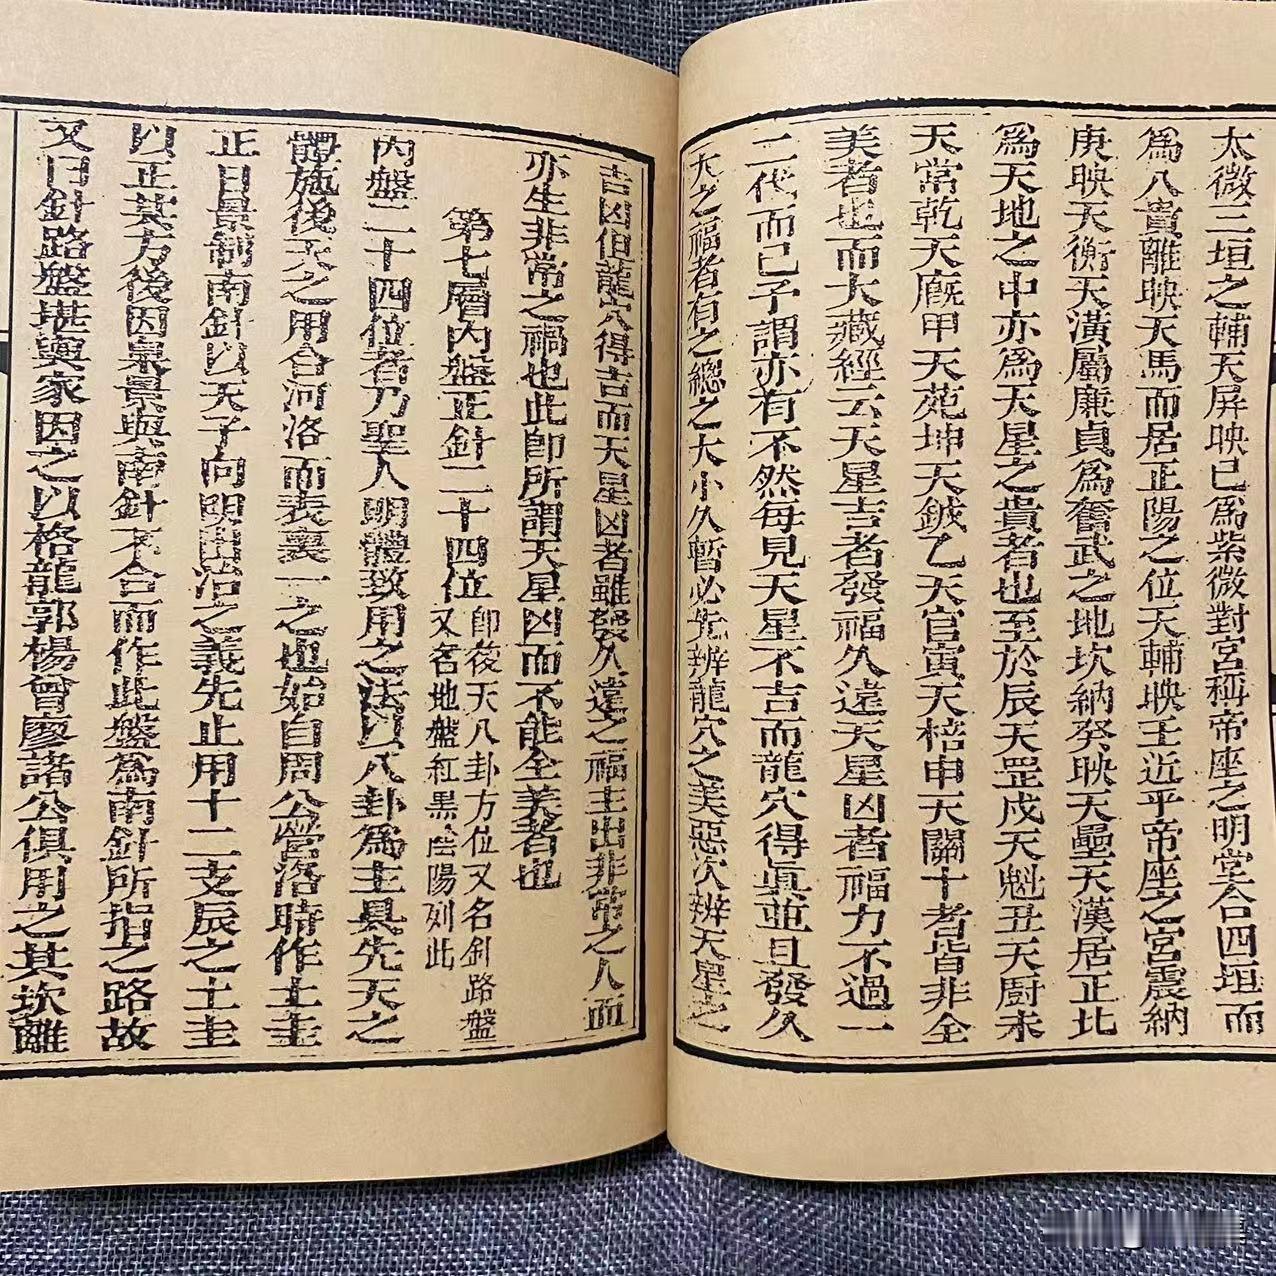 太微三垣之輔天屏映巳爲紫微對宮稱帝座之明堂合四垣而
爲八貴離映天馬而居正陽之位天輔映壬近乎帝座之宮震納
庚映天衡天潢屬廉貞爲奮武之地坎納癸映天壘天漢居正北
爲天地之中亦爲天星之貴者也至於辰天罡戍天魁丑天厨未
天常乾天廐甲天苑坤天鉞乙天官寅天棓申天關十者皆非全
美者也而大藏經云天星吉者發福久遠天星凶者福力不過一
二代而已予謂亦有不然每見天星不吉而龍穴得眞並且發久
大之福者有之總之大小久暫必先辨龍穴之美惡次辨天星之
吉凶但龍穴得吉而天星凶者雖發久遠之福主出非常之人而
亦生非常之禍也此卽所謂天星凶而不能全美者也
第七層內盤正針二十四位
卽後天八卦方位又名針路盤
又名地盤紅黑陰陽列此
內盤二十四位者乃聖人明體致用之法以八卦爲主具先天之
體施後天之用合河洛而表裏一之也始自周公營洛時作土圭
正日景制南針以天子向明出治之義先止用十二支辰之土圭
以正其方後因臬景與南針不合而作此盤爲南針所指之路故
又曰針路盤堪輿家因之以格龍郭楊曾廖諸公俱用之其坎離